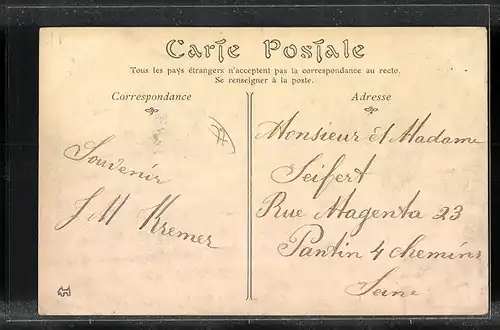 Carte Postale
Tous les pays étrangers n'acceptent pas la correspondance au recto.
Se renseigner à la poste.
Correspondance
Adresse
Souvenir
J M Kremer
Monsieur et Madame
Seifert
Rue Magenta 23
Pantin 4 chemins
Seine